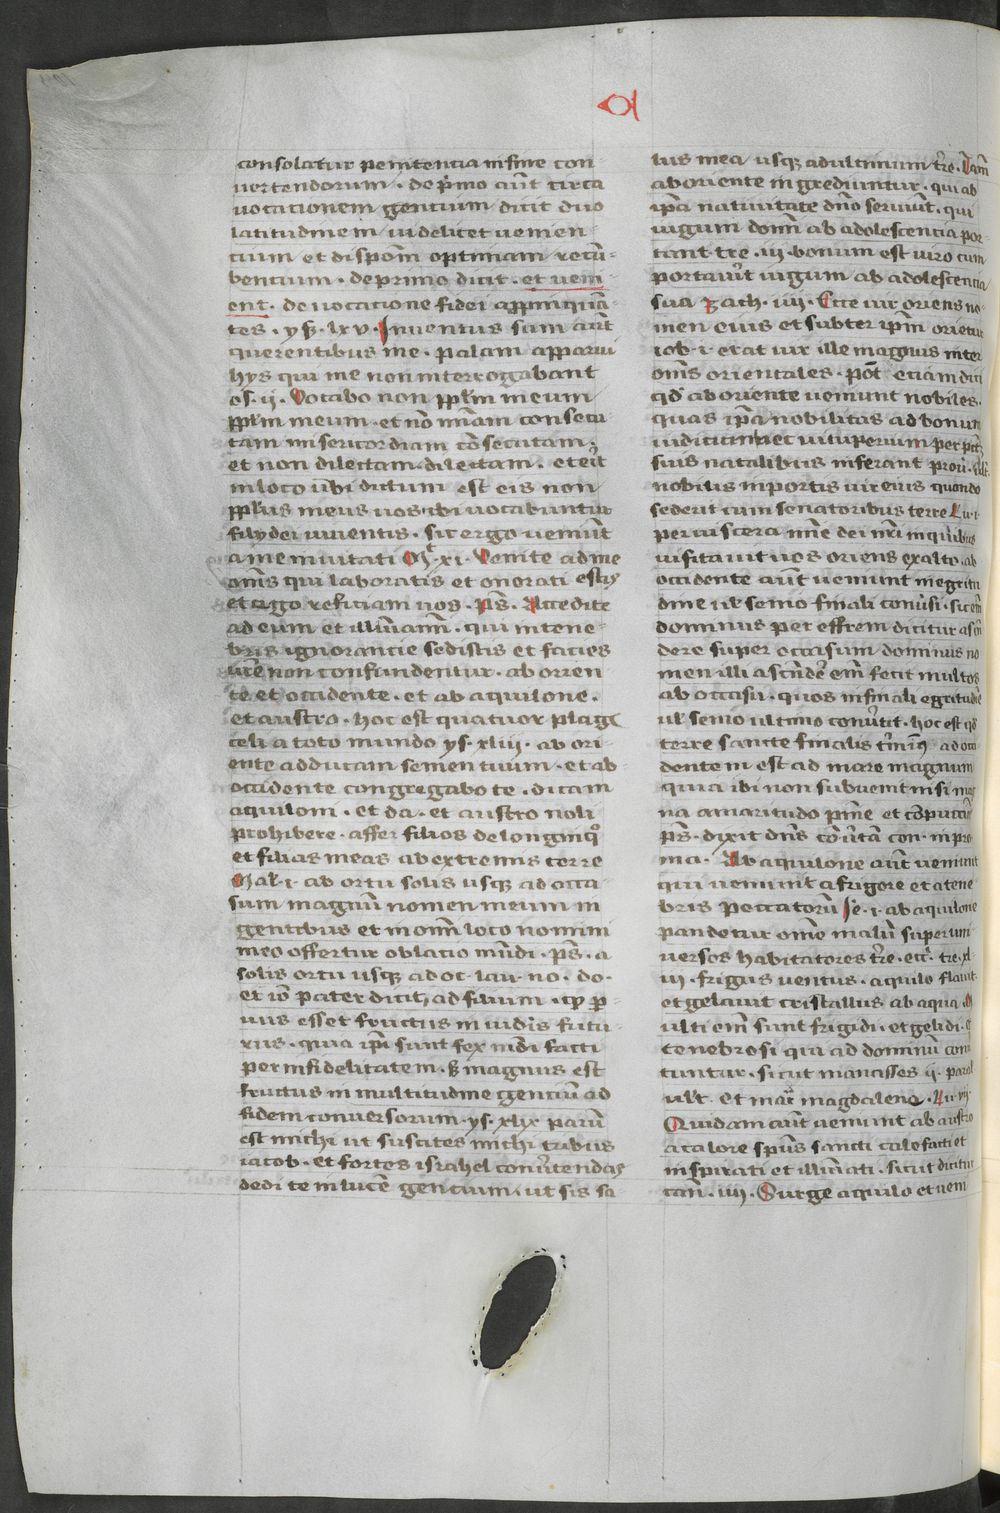 consolatur penitencia in fine con-
uertendorum . de p̄mo aūt circa
uocationem gencium dicit duo
latitudinem uidelicet uenien-
cium et disp̄om optimam recū-
bencium . de primo dicit . et ueni
ent . de uocatione fidei appinquā-
tes . ys̄ . lxv . Inuentus sum aūt
querentibus me . palam apparui
hys qui me non interrogabant
os . ij . Vocabo non pp̄lm meum
pp̄lm meum . et nō mīam consecu
tam misericordiam cōsecutam .
et non dilectam . dilectam . et eīt
in loco ūbi dictum est eis non
pp̄lus meus uos . ibi uocabuntur
filij dei uiuentis . sic ergo ueniūt
a me inuitati Mᵗ . xi . Venite ad me
om̄s qui laboratis et onorati estis
et ego reficiam uos . Ps̄ . Accedite
ad eum et illuīamī . qui in tene-
bris ignorancie sedistis et facies
ur̄e non confundentur . ab orien
te et occidente . et ab aquilone .
et austro . hoc est quatuor plage
celi a toto mundo ys . xliii . ab ori-
ente adducam semen tuum . et ab
occidente congregabo te . dicam
aquiloni . et da . et austro noli
prohibere . affer filios de longinqͦ
et filias meas ab extremis terre
Mal . i . ab ortu solis usqꝫ ad occa
sum magnū nomen meum in
gentibus et in om̄i loco nomini
meo offertur oblacio mūdi . ps̄ . a
solis ortu usqꝫ ad oc . lau . no . do .
et iō pater dicit ad filium . qͩ p̄-
uus esset fructus in iudīs futu-
rus . quia ip̄i sunt fex mīdi facti
per infidelitatem . sꝫ magnus est
fructus in multitudine genciū ad
fidem conuersorum . ys . xlix parū
est michi ut suscites michi tribus
iacob . et fortes israhel conūtendas
dedi te in lucē gencium . ut sis sa
lus mea usqꝫ ad ultimum tr̄e . Nam
ab oriente ingrediuntur . qui ab
ip̄a natiuitate dn̄o seruiūt . qui
iugum domī ab adolescencia por-
tant . tre . iij . bonum est uiro cum
portauīt iugum ab adolescencia
sua Zach . iiij . Ecce uir oriens no-
men eius et subter ip̄m orietur
iob . i . erat uir ille magnus inter
om̄s orientales . pot̄ eciam dici
qd̄ ab oriente ueniunt nobiles .
quas ip̄a nobilitas ad bonum
suis natalibus inferant prou .
nobilis in portis uir eius quando
sederit cum senatoribus terre Lu . i .
per uiscera mīe dei nr̄i in quibus
uisitauit nos oriens ex alto . ab
occidente aūt ueniunt in egritu
dine ul̄ senio finali conūsi . sic em̄
dominus per effrem dicitur ascē
dere super occasum dominus no
men illi ascēdē em̄ fecit multos
ab occasu . quos in finali egritudīe
ul̄ senio ultimo conūtit . hoc est qd̄
terre sancte finalis tm̄īꝰ ad occi
dentem est ad mare magnum
quia ibi non subuenit nisi mag
na amaritudo pnīe et cōpuccōīs
ps̄ . dixit dn̄s cōūtā con . in pro
ma . Ab aquilone aūt ueniunt
qui ueniunt a frigore et a tene
bris peccatorū Je . i . ab aquilone
pandetur om̄e malū super uni
uersos habitatores tr̄e . ecc̄ . tre . xl
iij . frigus uentus . aquilo flauit
et gelauit cristallus ab aqua . M
ulti em̄ sunt frigidi . et gelidi . et
tenebrosi qui ad dominū conū
tuntur . sicut manasses ij . paral
ult̄ . et maͬ magdalene . Lu . vij .
Quidam aūt ueniunt ab austro
a calore spūs sancti calefacti et
inspirati et illuīati . sicut dicitur
can̄ . iiij . Surge aquilo et ueni